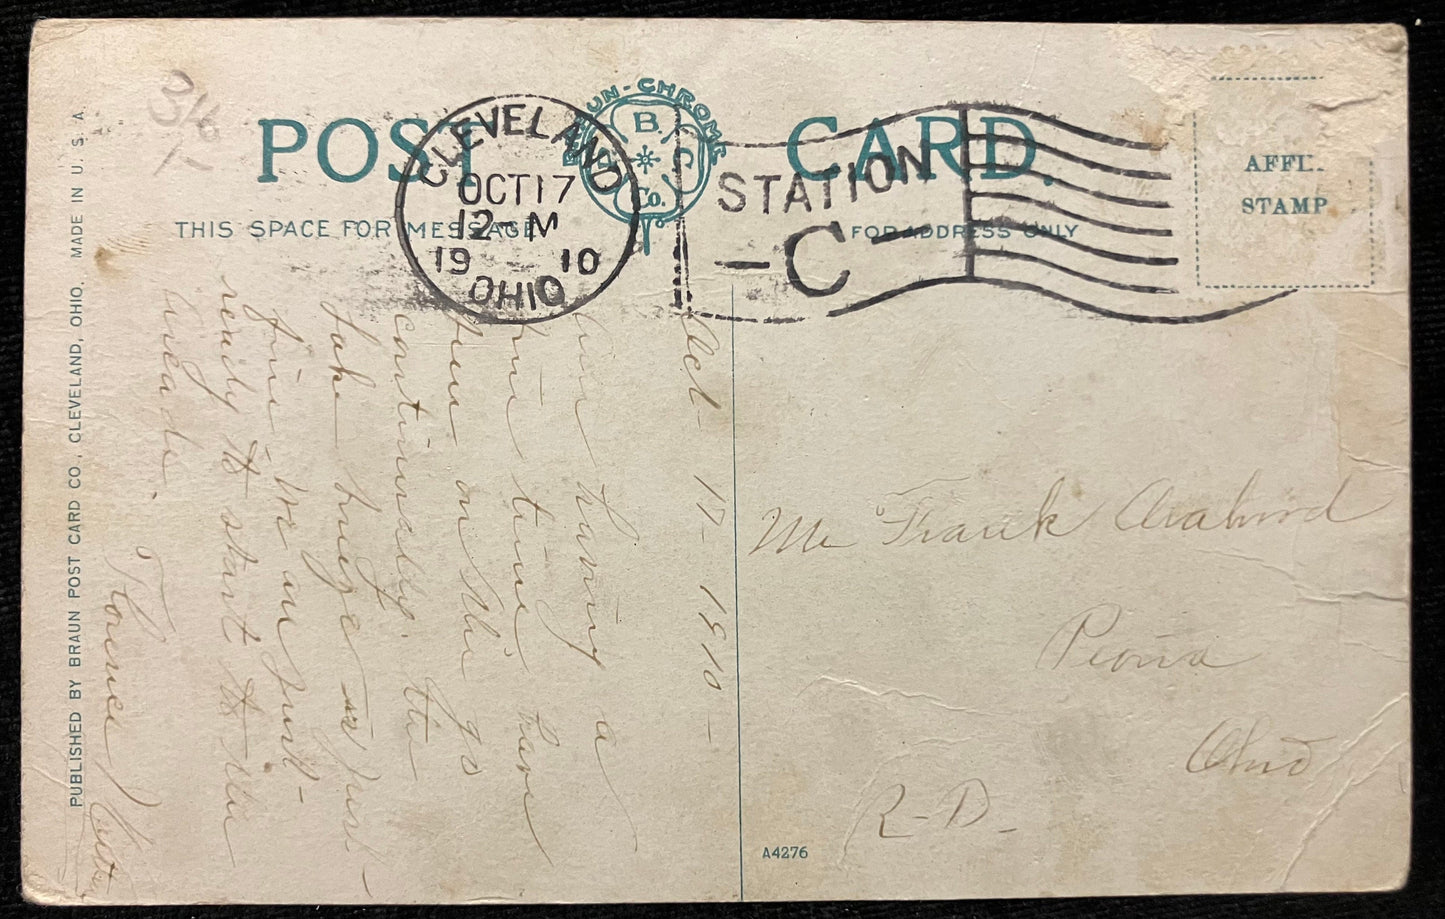 POST CARD.
BRAUN-CHROME
B. C. Co.
CLEVELAND
OCT 17
12-M
1910
OHIO
STATION
-C-
THIS SPACE FOR MESSAGE
FOR ADDRESS ONLY
STAMP
PUBLISHED BY BRAUN POST CARD CO., CLEVELAND, OHIO, MADE IN U. S. A.
Oct- 17- 1910-
having a
fine time have
been on the go
continually. the
lake breeze is just
fine- We are just
ready to start to the
Florence
Mr Frank
Peoria
Ohio
R-D-
A4276